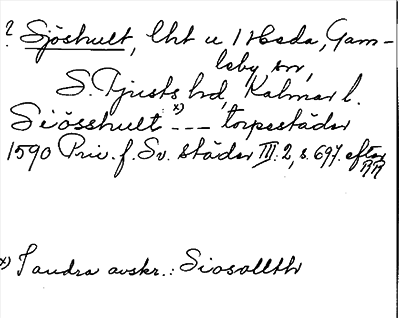 ? Sjöshult, lht u 1 Heda, Gam-
leby sn,
S. Tjusts hd, Kalmar l.
Siösshult x) --- torpestäder
1590 Priv. f. Sv. städer III:2, s. 697. efter
RR
x) I andra avskr.: Siosollth